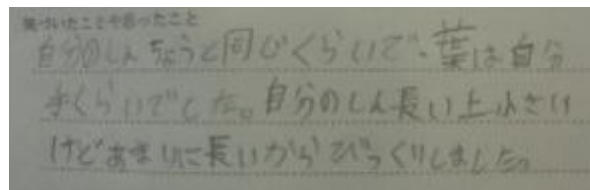 気づいたことや思ったこと
自分のしんちょうと同じくらいで、葉は自分
手くらいでした。自分のしん長い上小さい
けどあまりに長いからびっくりしました。